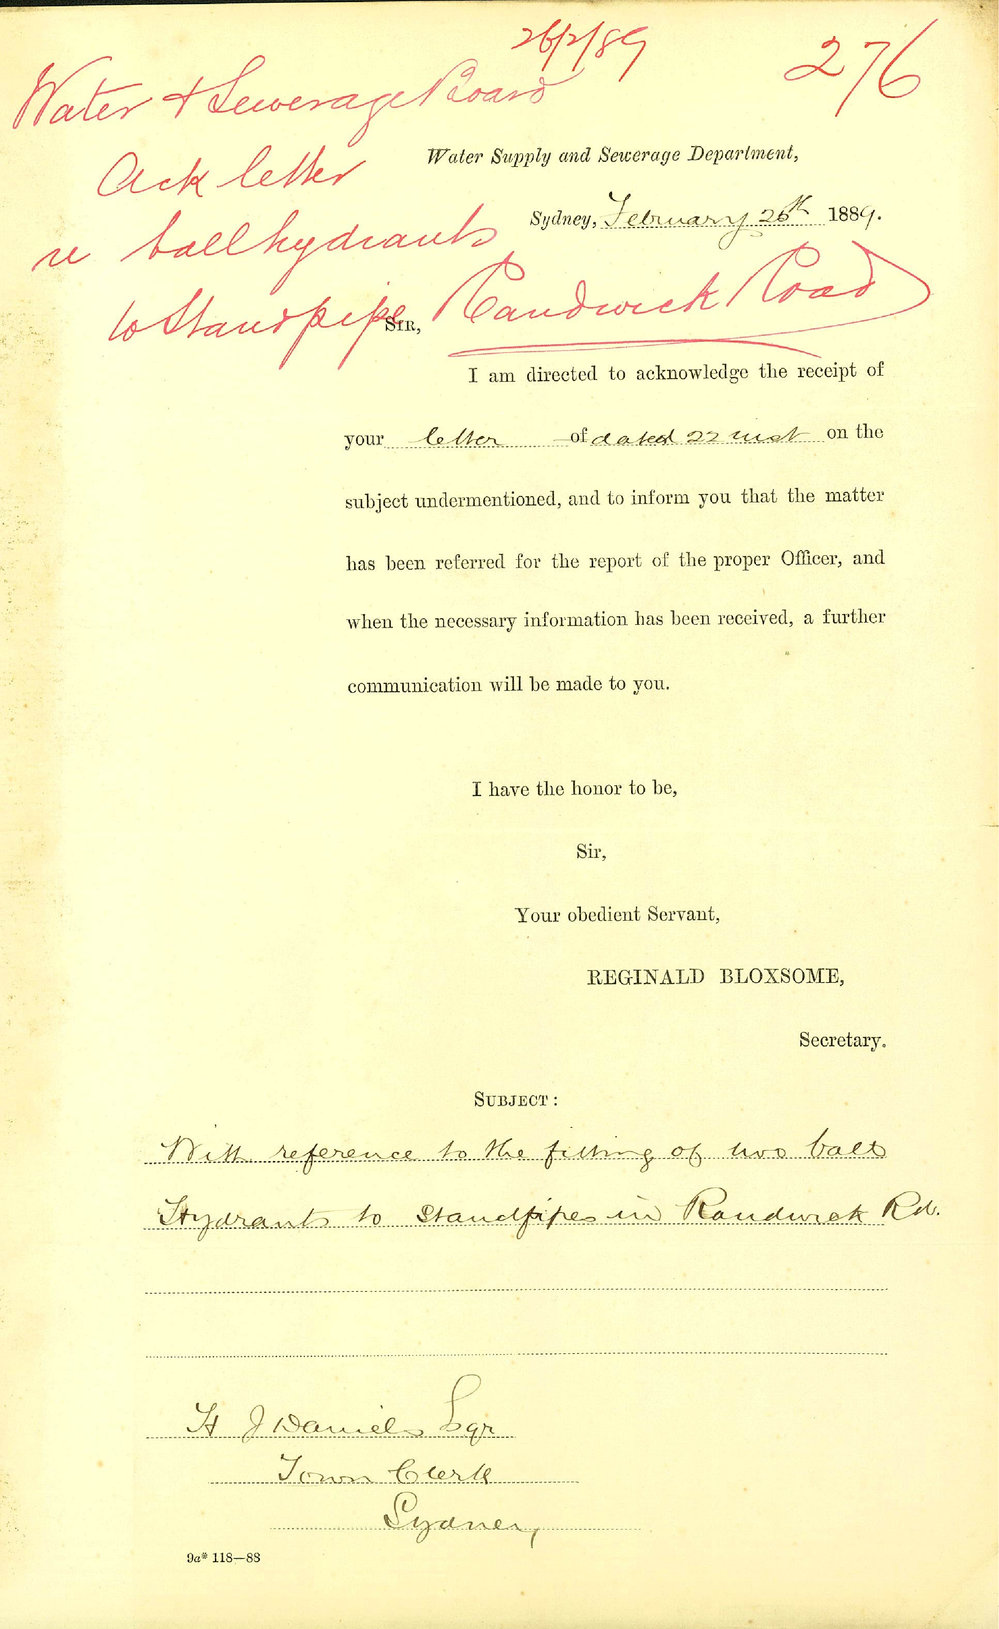 26/2/89
276
Water & Sewerage Board
Ack letter
re ball hydrants
to Standpipe, Randwick Road
Water Supply and Sewerage Department,
Sydney, February 26th 1889.
SIR,
I am directed to acknowledge the receipt of
your letter of dated 22 inst on the
subject undermentioned, and to inform you that the matter
has been referred for the report of the proper Officer, and
when the necessary information has been received, a further
communication will be made to you.
I have the honor to be,
Sir,
Your obedient Servant,
REGINALD BLOXSOME,
Secretary.
SUBJECT:
With reference to the fitting of two ball
Hydrants to Standpipes in Randwick Rd.
H J Daniels Esqr
Town Clerk
Sydney,
9a* 118—88